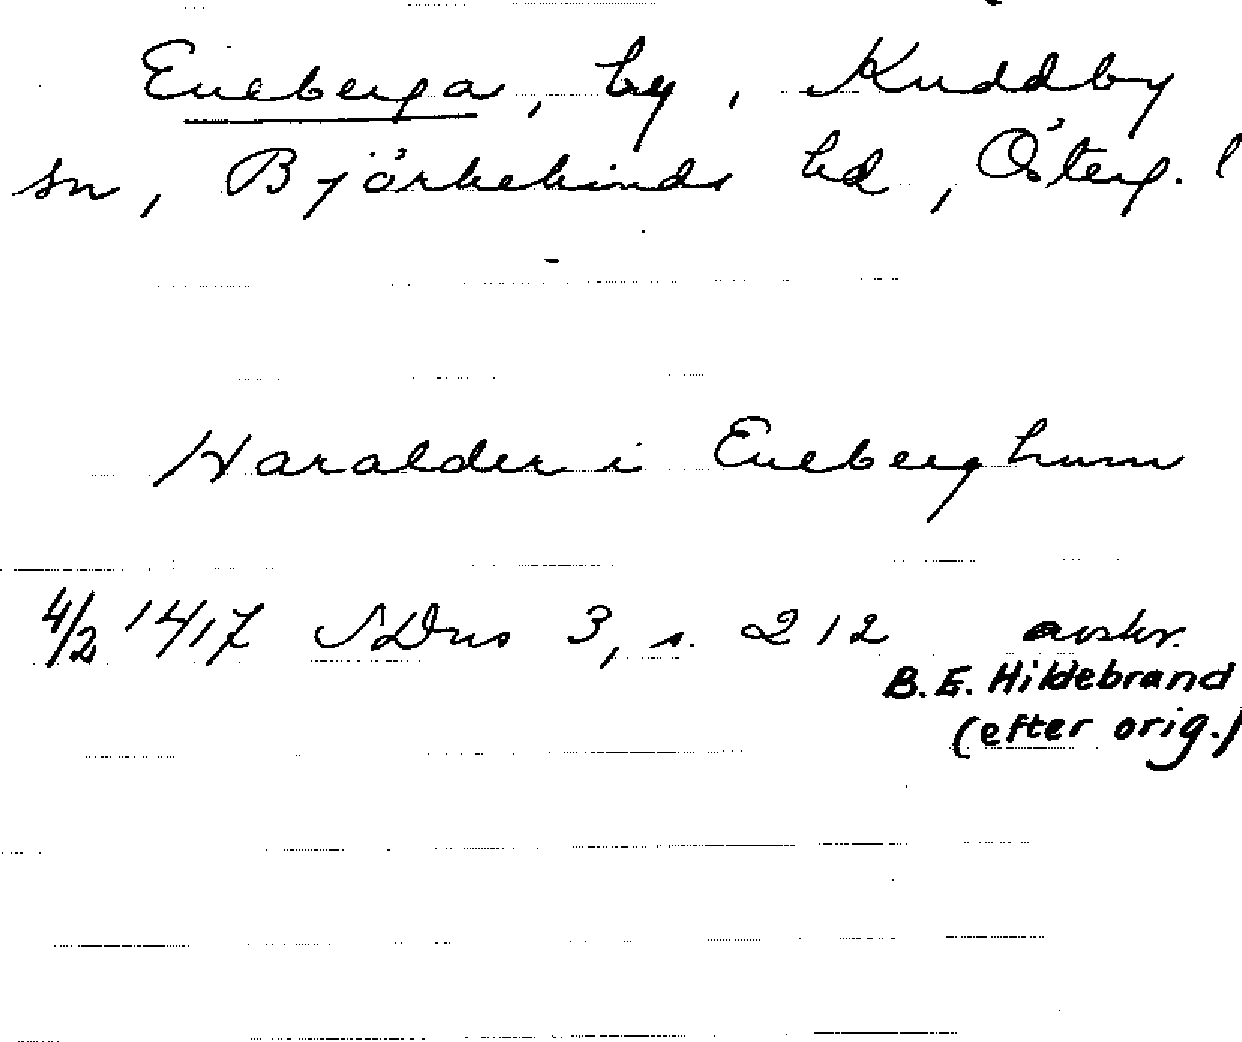 Eneberga, by, Kuddby
sn, Björkekinds hd, Österg. l
Haralder i Eneberghum
4/2 1417 SDns 3, s. 212 avskr.
B. E. Hildebrand
(efter orig.)